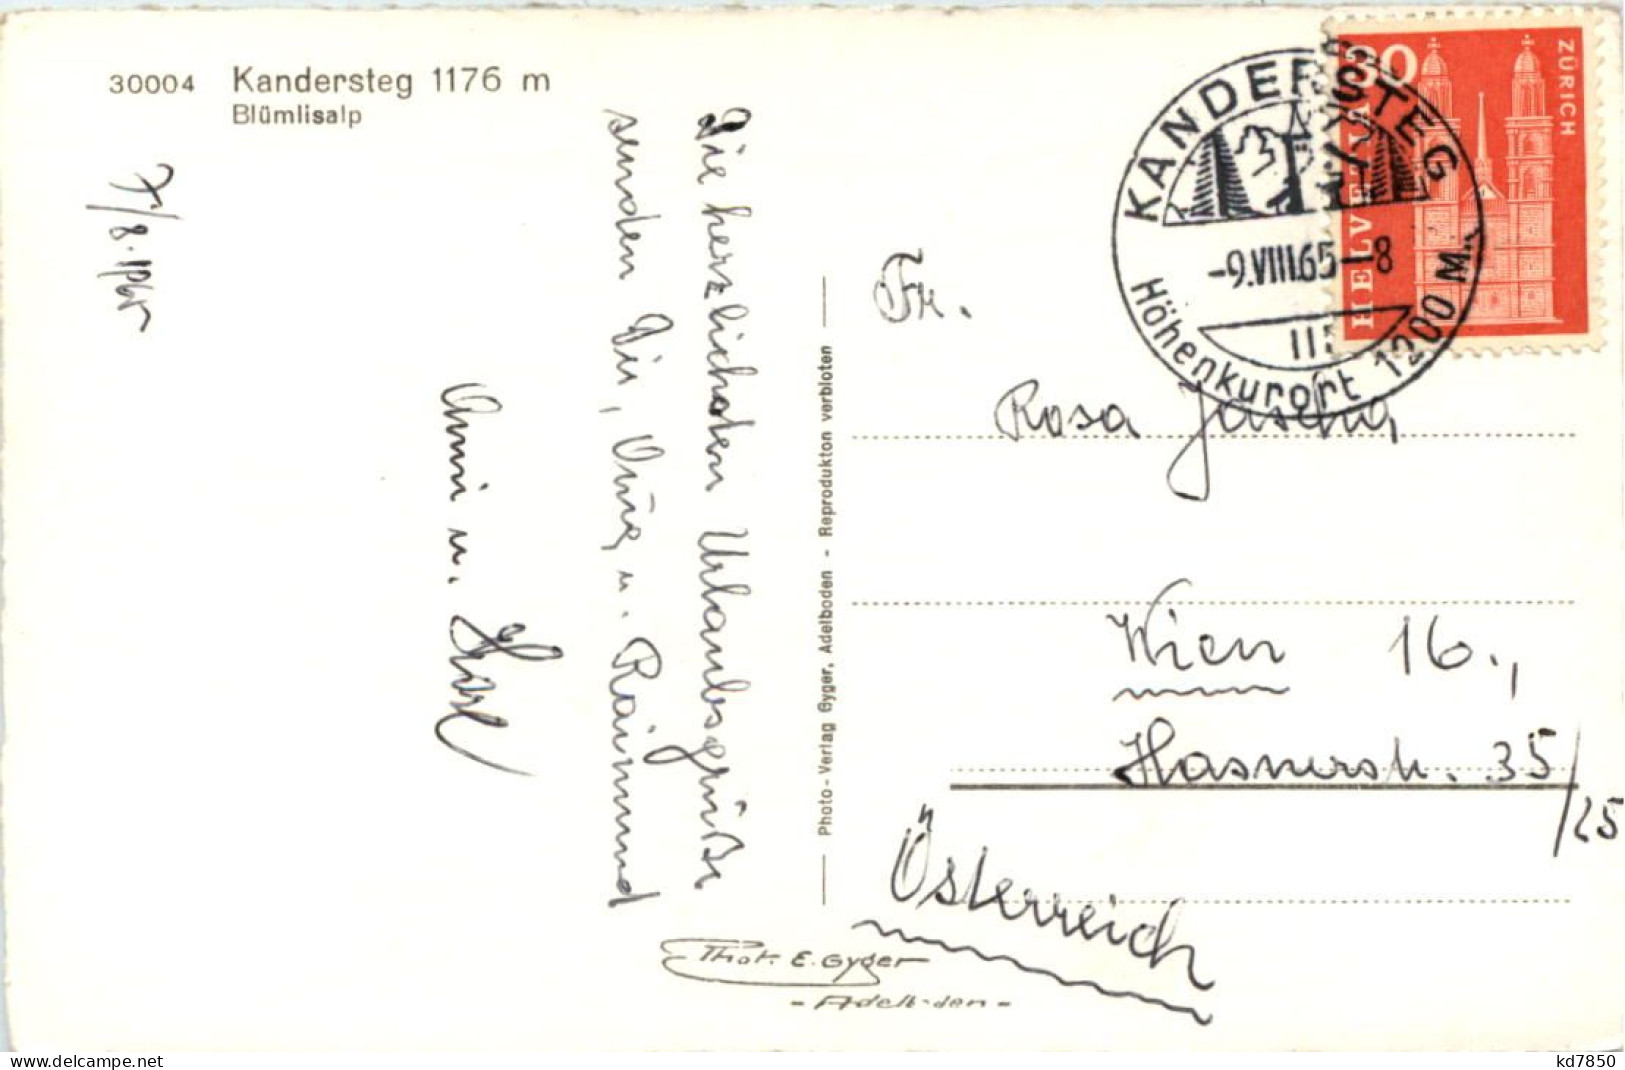 30004 Kandersteg 1176 m
Blümlisalp
7/8.1965
Die herzlichsten Urlaubsgrüße
senden Dir, Onkg u. Raimund
Anni u.
KANDERSTEG
-9.VIII.65-8
Höhenkurort 1200 M.
30
HELVETIA
ZÜRICH
Fr.
Rosa Jascha
Wien 16.,
Hasnerstr. 35/25
Österreich
Photo-Verlag Gyger, Adelboden - Reproduktion verboten
Phot. E. Gyger
- Adelboden -
www.delcampe.net
kd7850